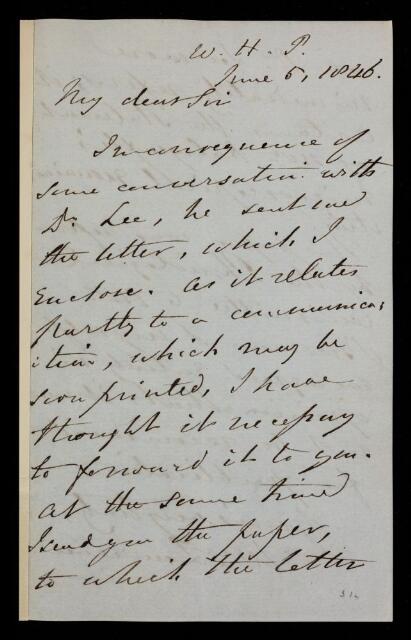 W. H. P.
June 5, 1846.
My dear Sir
In consequence of
some conversation with
Dr Lee, he sent me
the letter, which I
enclose. As it relates
partly to a communica:
:tion, which may be
soon printed, I have
thought it necessary
to forward it to you.
At the same time
I send you the paper,
to which the letter